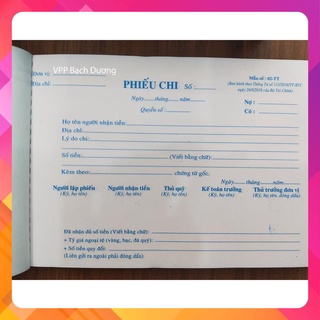 VPP Bach Dương
Đơn vị:
Địa chỉ:
Mẫu số : 02-TT
PHIẾU CHI Số:
Ngày.......tháng.......năm.......
Quyển số :
Nợ :
Có :
Họ tên người nhận tiền:
Địa chỉ:
Lý do chi:
Số tiền: (Viết bằng chữ):
Kèm theo: chứng từ gốc.
Ngày.......tháng.......năm.......
Người lập phiếu Người nhận tiền Thủ quỹ Kế toán trưởng Thủ trưởng đơn vị
(Ký, họ tên) (Ký, họ tên) (Ký, họ tên) (Ký, họ tên) (Ký, họ tên, đóng dấu)
Đã nhận đủ số tiền (Viết bằng chữ):
+ Tỷ giá ngoại tệ (vàng, bạc, đá quý):
+ Số tiền quy đổi:
(Liên gửi ra ngoài phải đóng dấu)